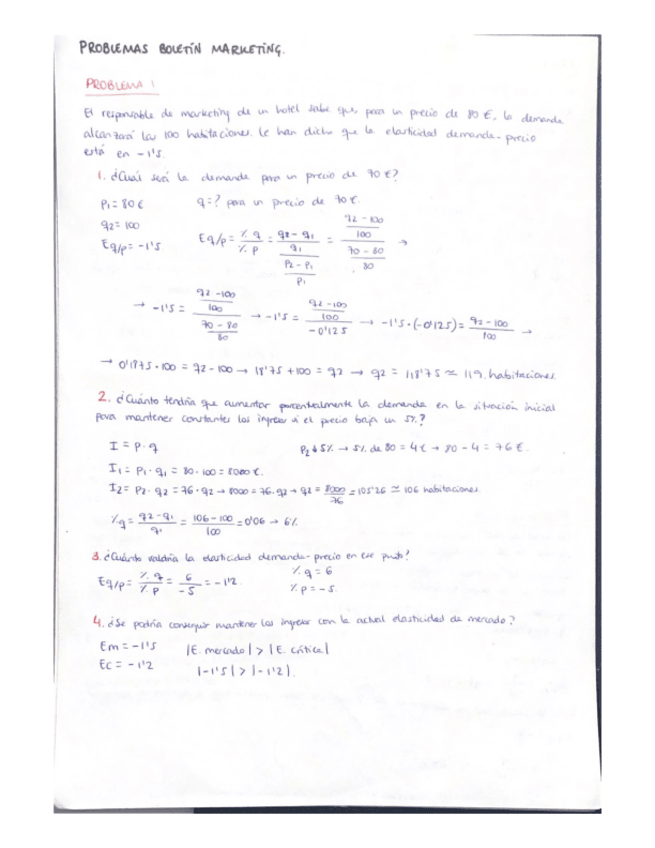 PROBLEMAS BOLETÍN MARKETING.
PROBLEMA 1
El responsable de marketing de un hotel sabe que, para un precio de 80 €, la demanda
alcanzará las 100 habitaciones. Le han dicho que la elasticidad demanda-precio
está en -1'5.
1. ¿Cuál será la demanda para un precio de 70 €?
P1 = 80 € q = ? para un precio de 70 €.
q2 = 100
Eq/p = -1'5 Eq/p = % q / % p = (q2 - q1 / q1) / (P2 - P1 / P1) = (q2 - 100 / 100) / (70 - 80 / 80) →
→ -1'5 = (q2 - 100 / 100) / (70 - 80 / 80) → -1'5 = (q2 - 100 / 100) / -0'125 → -1'5 · (-0'125) = q2 - 100 / 100 →
→ 0'1875 · 100 = q2 - 100 → 18'75 + 100 = q2 → q2 = 118'75 ≃ 119 habitaciones
2. ¿Cuánto tendría que aumentar porcentualmente la demanda en la situación inicial
para mantener constantes los ingresos si el precio baja un 5%?
I = P · q P2 ↓ 5% → 5% de 80 = 4 € → 80 - 4 = 76 €.
I1 = P1 · q1 = 80 · 100 = 8000 €.
I2 = P2 · q2 = 76 · q2 → 8000 = 76 · q2 → q2 = 8000 / 76 = 105'26 ≃ 106 habitaciones.
% q = q2 - q1 / q1 = 106 - 100 / 100 = 0'06 → 6%
3. ¿Cuánto valdría la elasticidad demanda-precio en ese punto?
Eq/p = % q / % p = 6 / -5 = -1'2 % q = 6
% p = -5
4. ¿Se podría conseguir mantener los ingresos con la actual elasticidad de mercado?
Em = -1'5 |E. mercado| > |E. crítica|
Ec = -1'2 |-1'5| > |-1'2|.